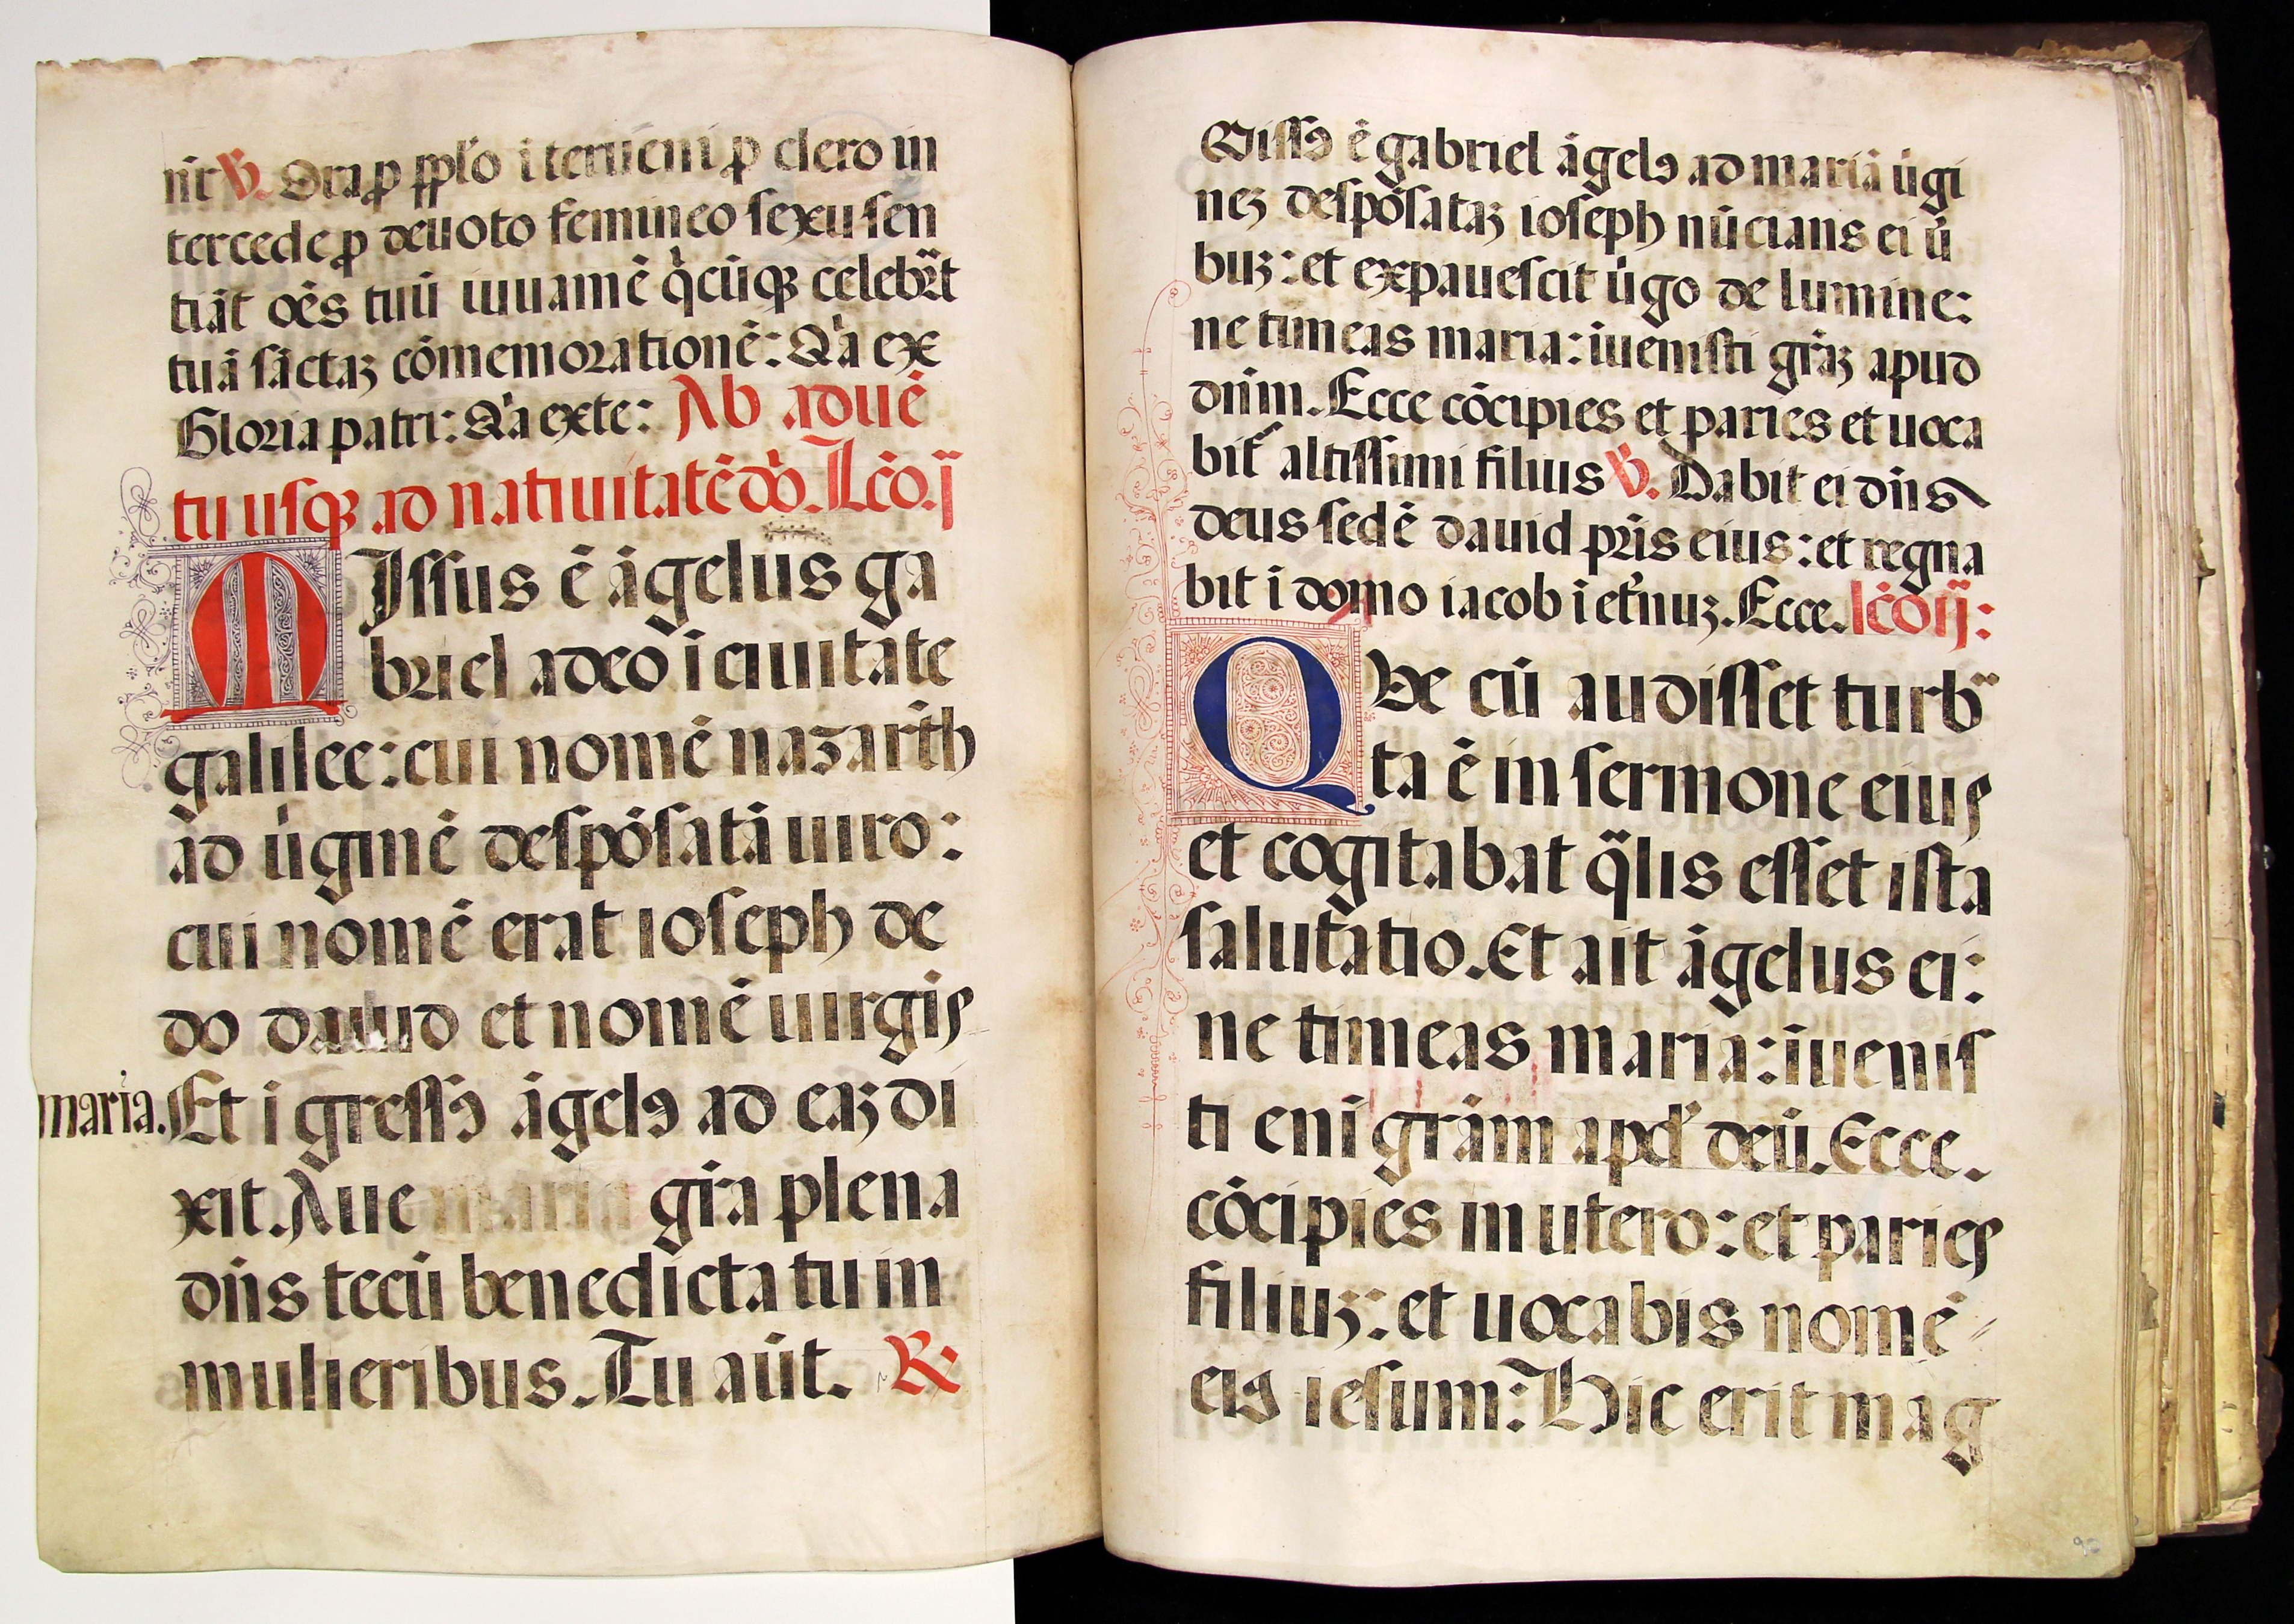 rit ℣. Ora ꝓ pplo iterueni ꝓ clero in
tercede ꝓ deuoto femineo sexu sen
tiāt oēs tuū iuuamē q̇cūqꝫ celebrāt
tuā sāctaꝫ cōmemorationē: Qa ex
Gloria patri: Qa exte: Ab aduē
tu usqꝫ ad natiuitatē dō. Lc̄o. j
MIssus ē āgelus ga
briel adeo i ciuitate
galilee: cui nomē nazarth
ad u̇ginē despōsatā uiro:
cui nomē erat ioseph de
do dauid et nomē uirgis
maria. Et i gressꝰ āgelꝰ ad eaꝫ di
xit. Aue maria gr̄a plena
dn̄s tecū benedicta tu in
mulieribus. Tu aūt. ℟
Missꝰ ē gabriel āgelꝰ ad mariā u̇gi
neꝫ despōsataꝫ ioseph nūcians ei ū
buꝫ: et expauescit u̇go de lumine:
ne timeas maria: iuenisti gr̄aꝫ apud
dn̄m. Ecce cōcipies et paries et uoca
bit᷑ altissimi filius ℣. Dabit ei dn̄s
deus sedē dauid pr̄is eius: et regna
bit i domo iacob i et̄nuꝫ. Ecce. lc̄o ij:
QVe cū audisset turb
ta ē in sermone eius
et cogitabat q̄lis esset ista
salutatio. Et ait āgelus ei:
ne timeas maria: iuenis
ti eni grām apd̕ deū. Ecce.
cōcipies in utero: et paries
filiuꝫ: et uocabis nomē
eiꝰ iesum: Hic erit mag